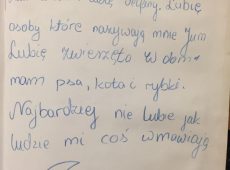 osoby które nazywają mnie Jum
Lubię zwierzęto w dom
mam psa, kota i rybki.
Najbardziej nie lubię jak
ludzie mi coś wmawiają